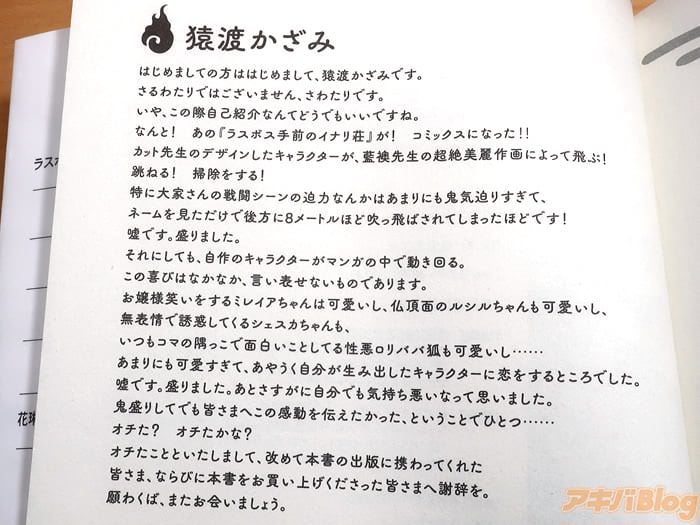 猿渡かざみ
はじめましての方ははじめまして、猿渡かざみです。
さるわたりではございません、さわたりです。
いや、この際自己紹介なんてどうでもいいですね。
なんと！　あの『ラスボス手前のイナリ荘』が！　コミックスになった!!
カット先生のデザインしたキャラクターが、藍襖先生の超絶美麗作画によって飛ぶ！
跳ねる！　掃除をする！
特に大家さんの戦闘シーンの迫力なんかはあまりにも鬼気迫りすぎて、
ネームを見ただけで後方に8メートルほど吹っ飛ばされてしまったほどです！
嘘です。盛りました。
それにしても、自作のキャラクターがマンガの中で動き回る。
この喜びはなかなか、言い表せないものであります。
お嬢様笑いをするミレイアちゃんは可愛いし、仏頂面のルシルちゃんも可愛いし、
無表情で誘惑してくるシェスカちゃんも、
いつもコマの隅っこで面白いことしてる性悪ロリババ狐も可愛いし……
あまりにも可愛すぎて、あやうく自分が生み出したキャラクターに恋をするところでした。
嘘です。盛りました。あとさすがに自分でも気持ち悪いなって思いました。
鬼盛りしてでも皆さまへこの感動を伝えたかった、ということでひとつ……
オチた？　オチたかな？
オチたことといたしまして、改めて本書の出版に携わってくれた
皆さま、ならびに本書をお買い上げくださった皆さまへ謝辞を。
願わくば、またお会いしましょう。
ラスボ
花珠
アキバBlog